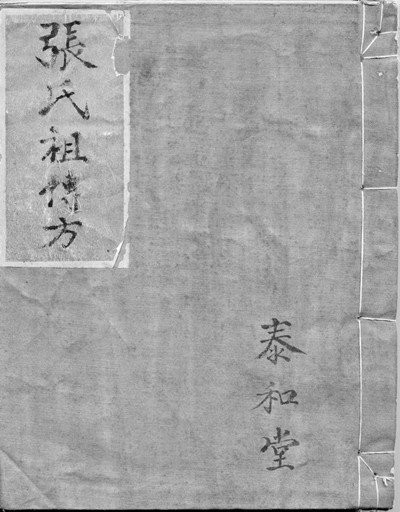 張氏祖傳方
泰和堂